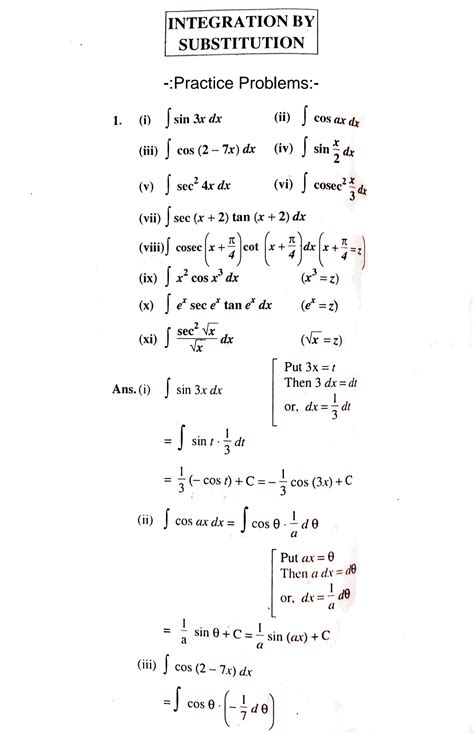 INTEGRATION BY
SUBSTITUTION
-:Practice Problems:-
1. (i) ∫ sin 3x dx (ii) ∫ cos ax dx
(iii) ∫ cos (2 – 7x) dx (iv) ∫ sin x/2 dx
(v) ∫ sec² 4x dx (vi) ∫ cosec² x/3 dx
(vii) ∫ sec (x + 2) tan (x + 2) dx
(viii) ∫ cosec (x + π/4) cot (x + π/4) dx (x + π/4 = z)
(ix) ∫ x² cos x³ dx (x³ = z)
(x) ∫ eˣ sec eˣ tan eˣ dx (eˣ = z)
(xi) ∫ sec² √x / √x dx (√x = z)
Ans. (i) ∫ sin 3x dx [ Put 3x = t
Then 3 dx = dt
or, dx = 1/3 dt
= ∫ sin t · 1/3 dt
= 1/3 (– cos t) + C = – 1/3 cos (3x) + C
(ii) ∫ cos ax dx = ∫ cos θ · 1/a d θ
[ Put ax = θ
Then a dx = dθ
or, dx = 1/a dθ
= 1/a sin θ + C = 1/a sin (ax) + C
(iii) ∫ cos (2 – 7x) dx
= ∫ cos θ · (– 1/7 d θ)